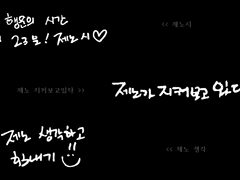 행운의 시간
23분! 제노시♡
<< 제노시
제노 지켜보고있다 >>
제노가 지켜보고 있다
제노 생각하고
힘내기
<< 제노 생각